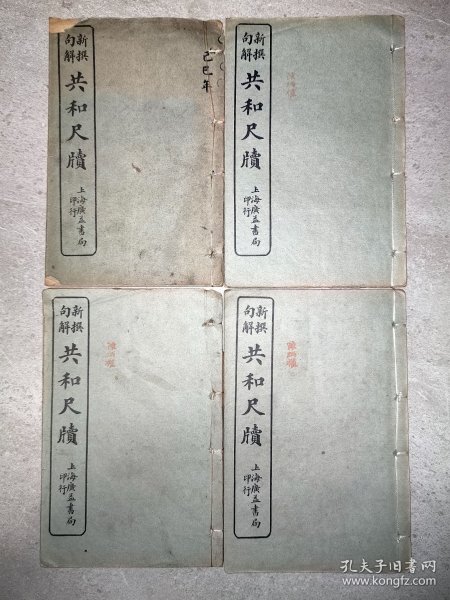 己巳年
新撰
句解
共和尺牘
上海廣益書局
印行
新撰
句解
共和尺牘
上海廣益書局
印行
新撰
句解
共和尺牘
上海廣益書局
印行
新撰
句解
共和尺牘
上海廣益書局
印行
孔夫子旧书网
www.kongfz.com